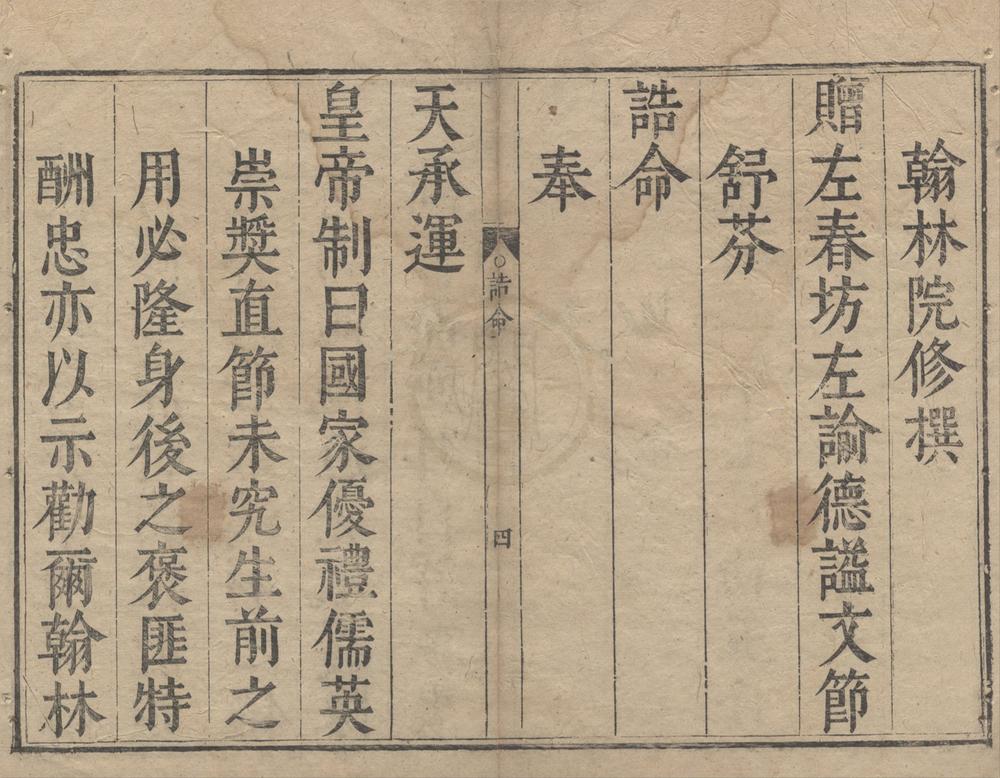 翰林院修撰
贈左春坊左諭德謚文節
舒芬
誥命
奉
誥命
四
天承運
皇帝制曰國家優禮儒英
崇奬直節未究生前之
用必隆身後之褒匪特
酬忠亦以示勸爾翰林